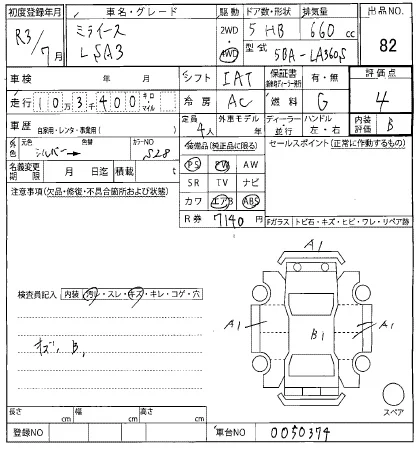 初度登録年月 車名・グレード 駆動 ドア数・形状 排気量 出品NO.
R3/7月 ミライース L,SA3 2WD・4WD 5 HB 660 cc 82
型式 5BA-LA360S
車検 年 月 シフト IAT 保証書 有・無 評価点
走行 10万3千400 キロ・マイル 冷房 AC 燃料 G 4
車歴 自家用・レンタ・事業用( ) 定員 4人 外車モデル 年 ディーラー・並行 ハンドル 左・右 内装評価 B
外色 元色 シルバー 色替 カラーNO S28 装備品(純正品に限る) セールスポイント(正常に作動するもの)
名義変更期限 月 日迄 積載 t PS PW AW
SR TV ナビ
注意事項(欠品・修復・不具合箇所および状態) カワ エアB ABS
R券 7140円 Fガラス トビ石・キズ・ヒビ・ワレ・リペア跡
A1
検査員記入 内装 汚レ・スレ・キズ・キレ・コゲ・穴
A1 B1 A1
キズ, B,
A1
スペア
長さ cm 幅 cm 高さ cm
登録NO 車台NO 0050374